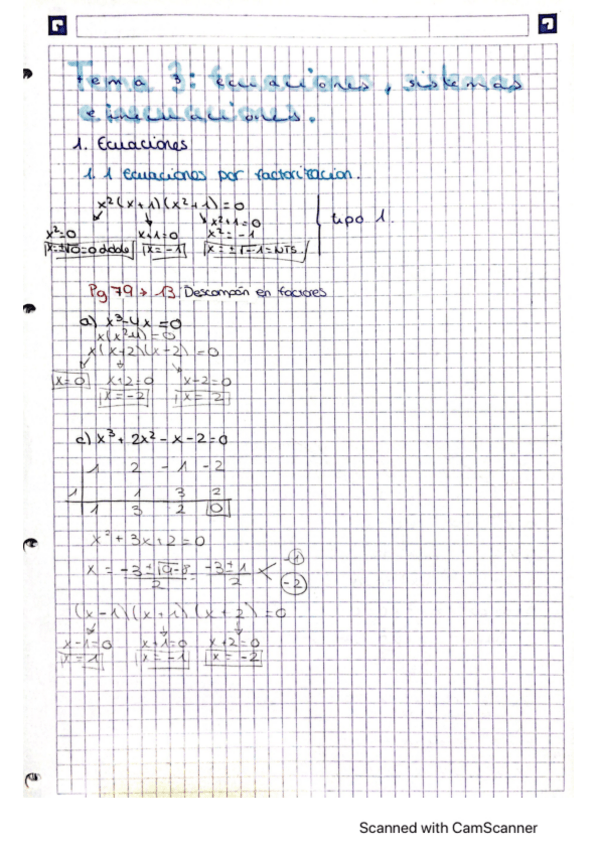 Tema 3: Ecuaciones, sistemas
e inecuaciones.
1. Ecuaciones
1.1 Ecuaciones por factorización.
x²(x+1)(x²+1)=0
x²=0 x+1=0 x²+1=0 tipo 1.
x=±√0=0 doble x=-1 x²=-1
x=±√-1=NTS
Pg 79 → 13 Descompón en factores
a) x³-4x=0
x(x²-4)=0
x(x+2)(x-2)=0
x=0 x+2=0 x-2=0
x=-2 x=2
c) x³+2x²-x-2=0
1 2 -1 -2
1 1 3 2
1 3 2 0
x²+3x+2=0
x = -3±√9-8 / 2 = -3±1 / 2 < -1 -2
(x-1)(x+1)(x+2)=0
x-1=0 x+1=0 x+2=0
x=1 x=-1 x=-2
Scanned with CamScanner